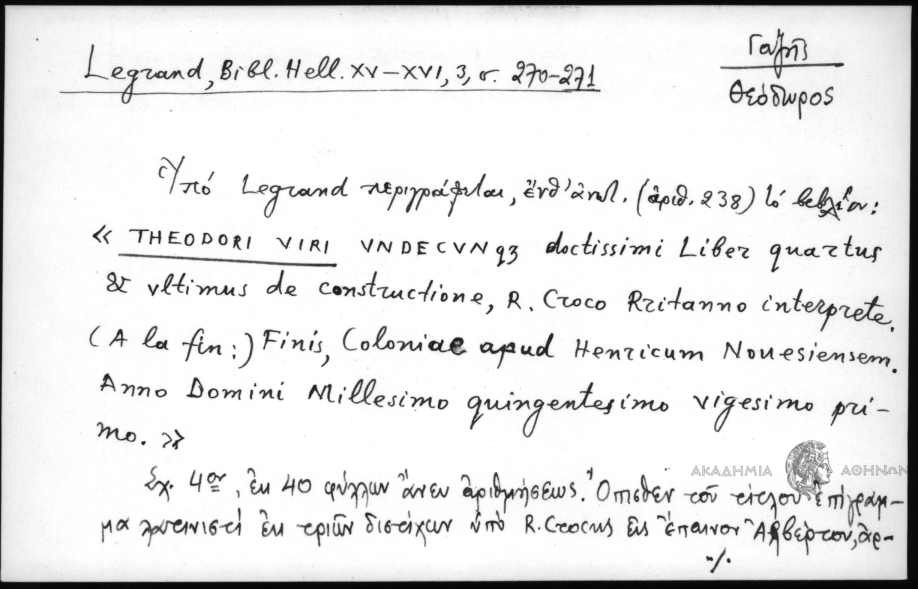 Γαζῆς
Θεόδωρος
Legrand, Bibl. Hell. XV–XVI, 3, σ. 270–271
Ὑπό Legrand περιγράφεται, ἔνθ' ἀνωτ. (ἀριθ. 238) τό βιβλίον:
« THEODORI VIRI VNDECVNqз doctissimi Liber quartus
& vltimus de constructione, R. Croco Rritanno interprete.
(A la fin:) Finis, Coloniae apud Henricum Nouesiensem.
Anno Domini Millesimo quingentesimo vigesimo pri-
mo. »
Σχ. 4ον, ἐκ 40 φύλλων ἄνευ ἀριθμήσεως. Ὄπισθεν τοῦ τίτλου ἐπίγραμ-
μα λατινιστί ἐκ τριῶν διστίχων ὑπό R. Crocus εἰς ἔπαινον Ἀλβέρτου, ἀρ-
./.
ΑΚΑΔΗΜΙΑ ΑΘΗΝΩΝ